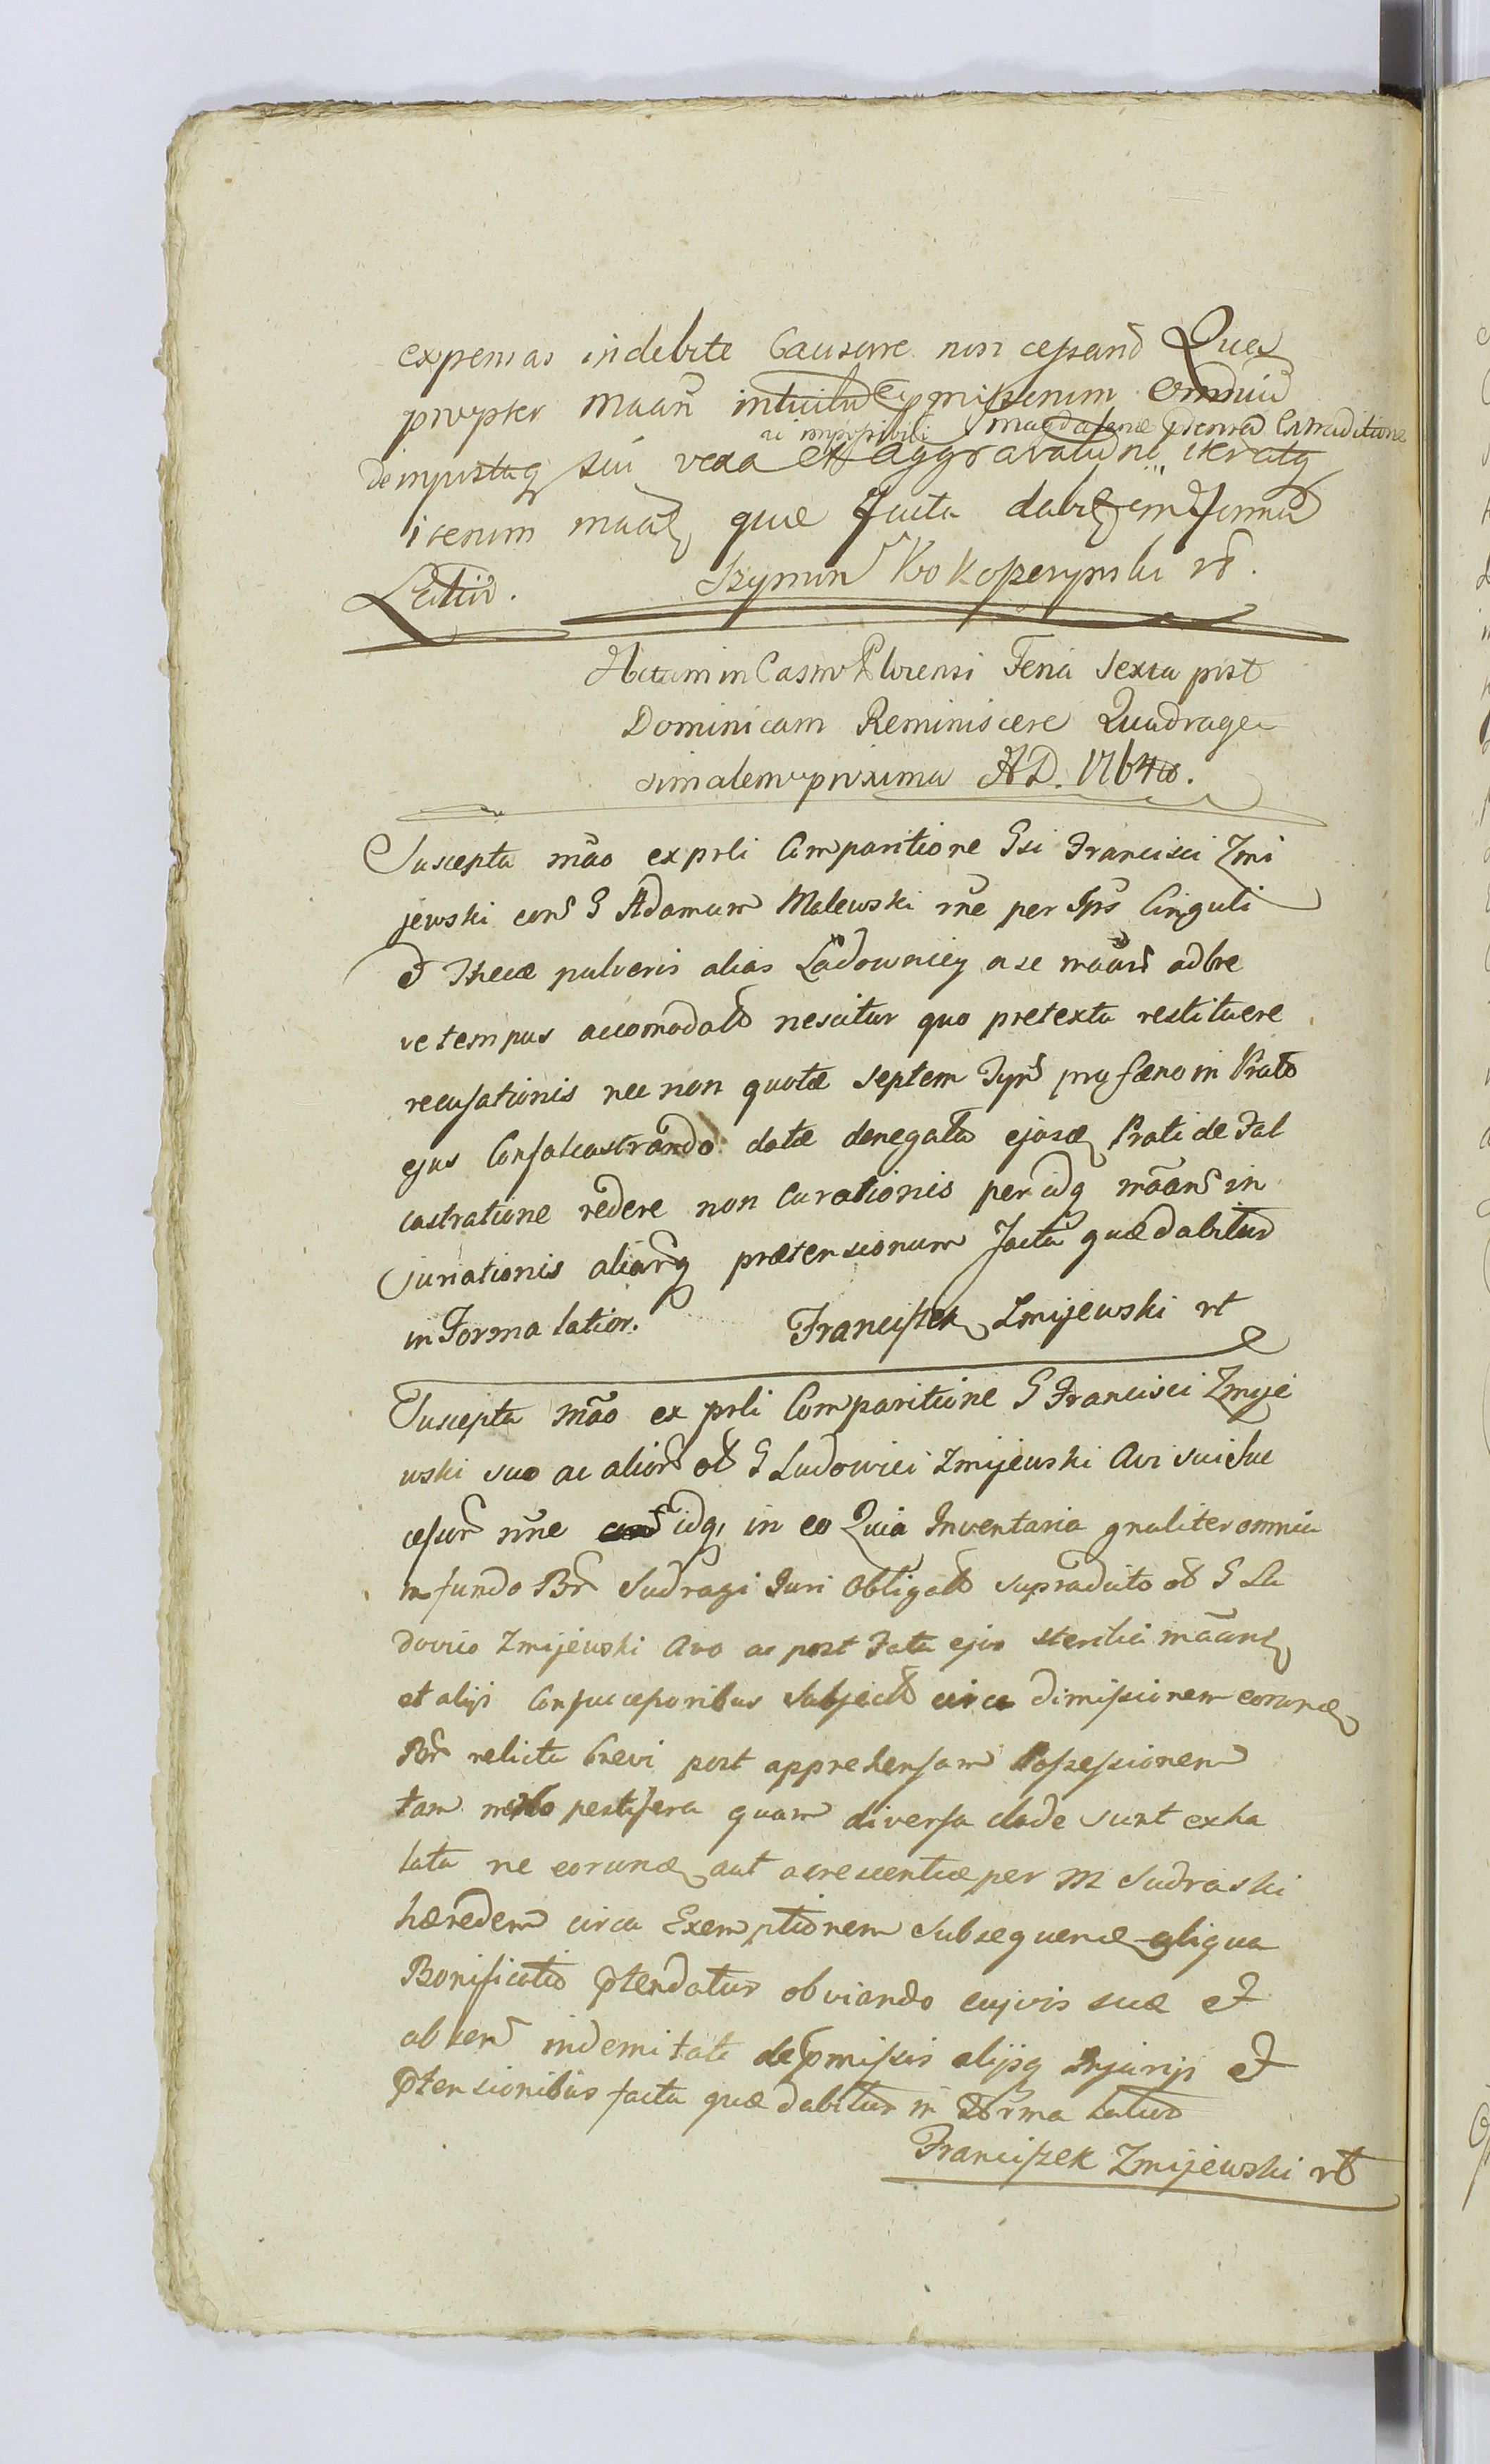 expensas indebite Causare non cessand Quas
propter maan intuitu praemissorum omnium
ai impossibili Magdalenae Extraditione
de injustaq sui vexa et aggravatione iteratq
iterum maa quae facta dabit in forma
Latior. Szymon Kokoszynski
Actum in Castro Feria Sexta post
Dominicam Reminiscere Quadrage
simalem proxima AD. 1764to.
Suscepta mão ex prli Comparitione Gsi Francisci Zmi
jewski con G Adamum Malewski rne per Cinguli
et Thecae pulveris alias Ładownicy a se maan ad bre
ve tempus accomodato nescitur quo pretextu restituere
recusationis nec non quotae septem Tyn pro faeno in Prato
ejus Confalcastrando datae denegata Prati de Fal
castratione redere non Curationis per idq maan in
juriationis aliarq praetensionum facta quae dabitur
in Forma latior. Franciszek Zmijewski rt
Suscepta mão ex prli Comparitione G Francisci Zmije
wski suo ac alior ol G Ludovici Zmijewski Avi sui Suc
cessor rne idq in eo Quia Inventaria gnaliter omnia
in fundo Bn Sudragi Juri Obligato supradicto ol G Lu
dovico Zmijewski Avo ac post Fata ejus sterilia maan
et alijs Consuccessoribus Subject circa dimissionem
Bn relicta brevi post apprehensam Possessionem
tam pestifera quam diversa clade sunt exha
lata ne aut acrescentiae per M Sudraski
haeredem circa Exemptionem aliqua
Bonificatio ptendatur obviando cujvis suae et
indemitati de pmissis alijsq Injurijs et
ptensionibus facta quae dabitur in Forma Latior
Franciszek Zmijewski rt